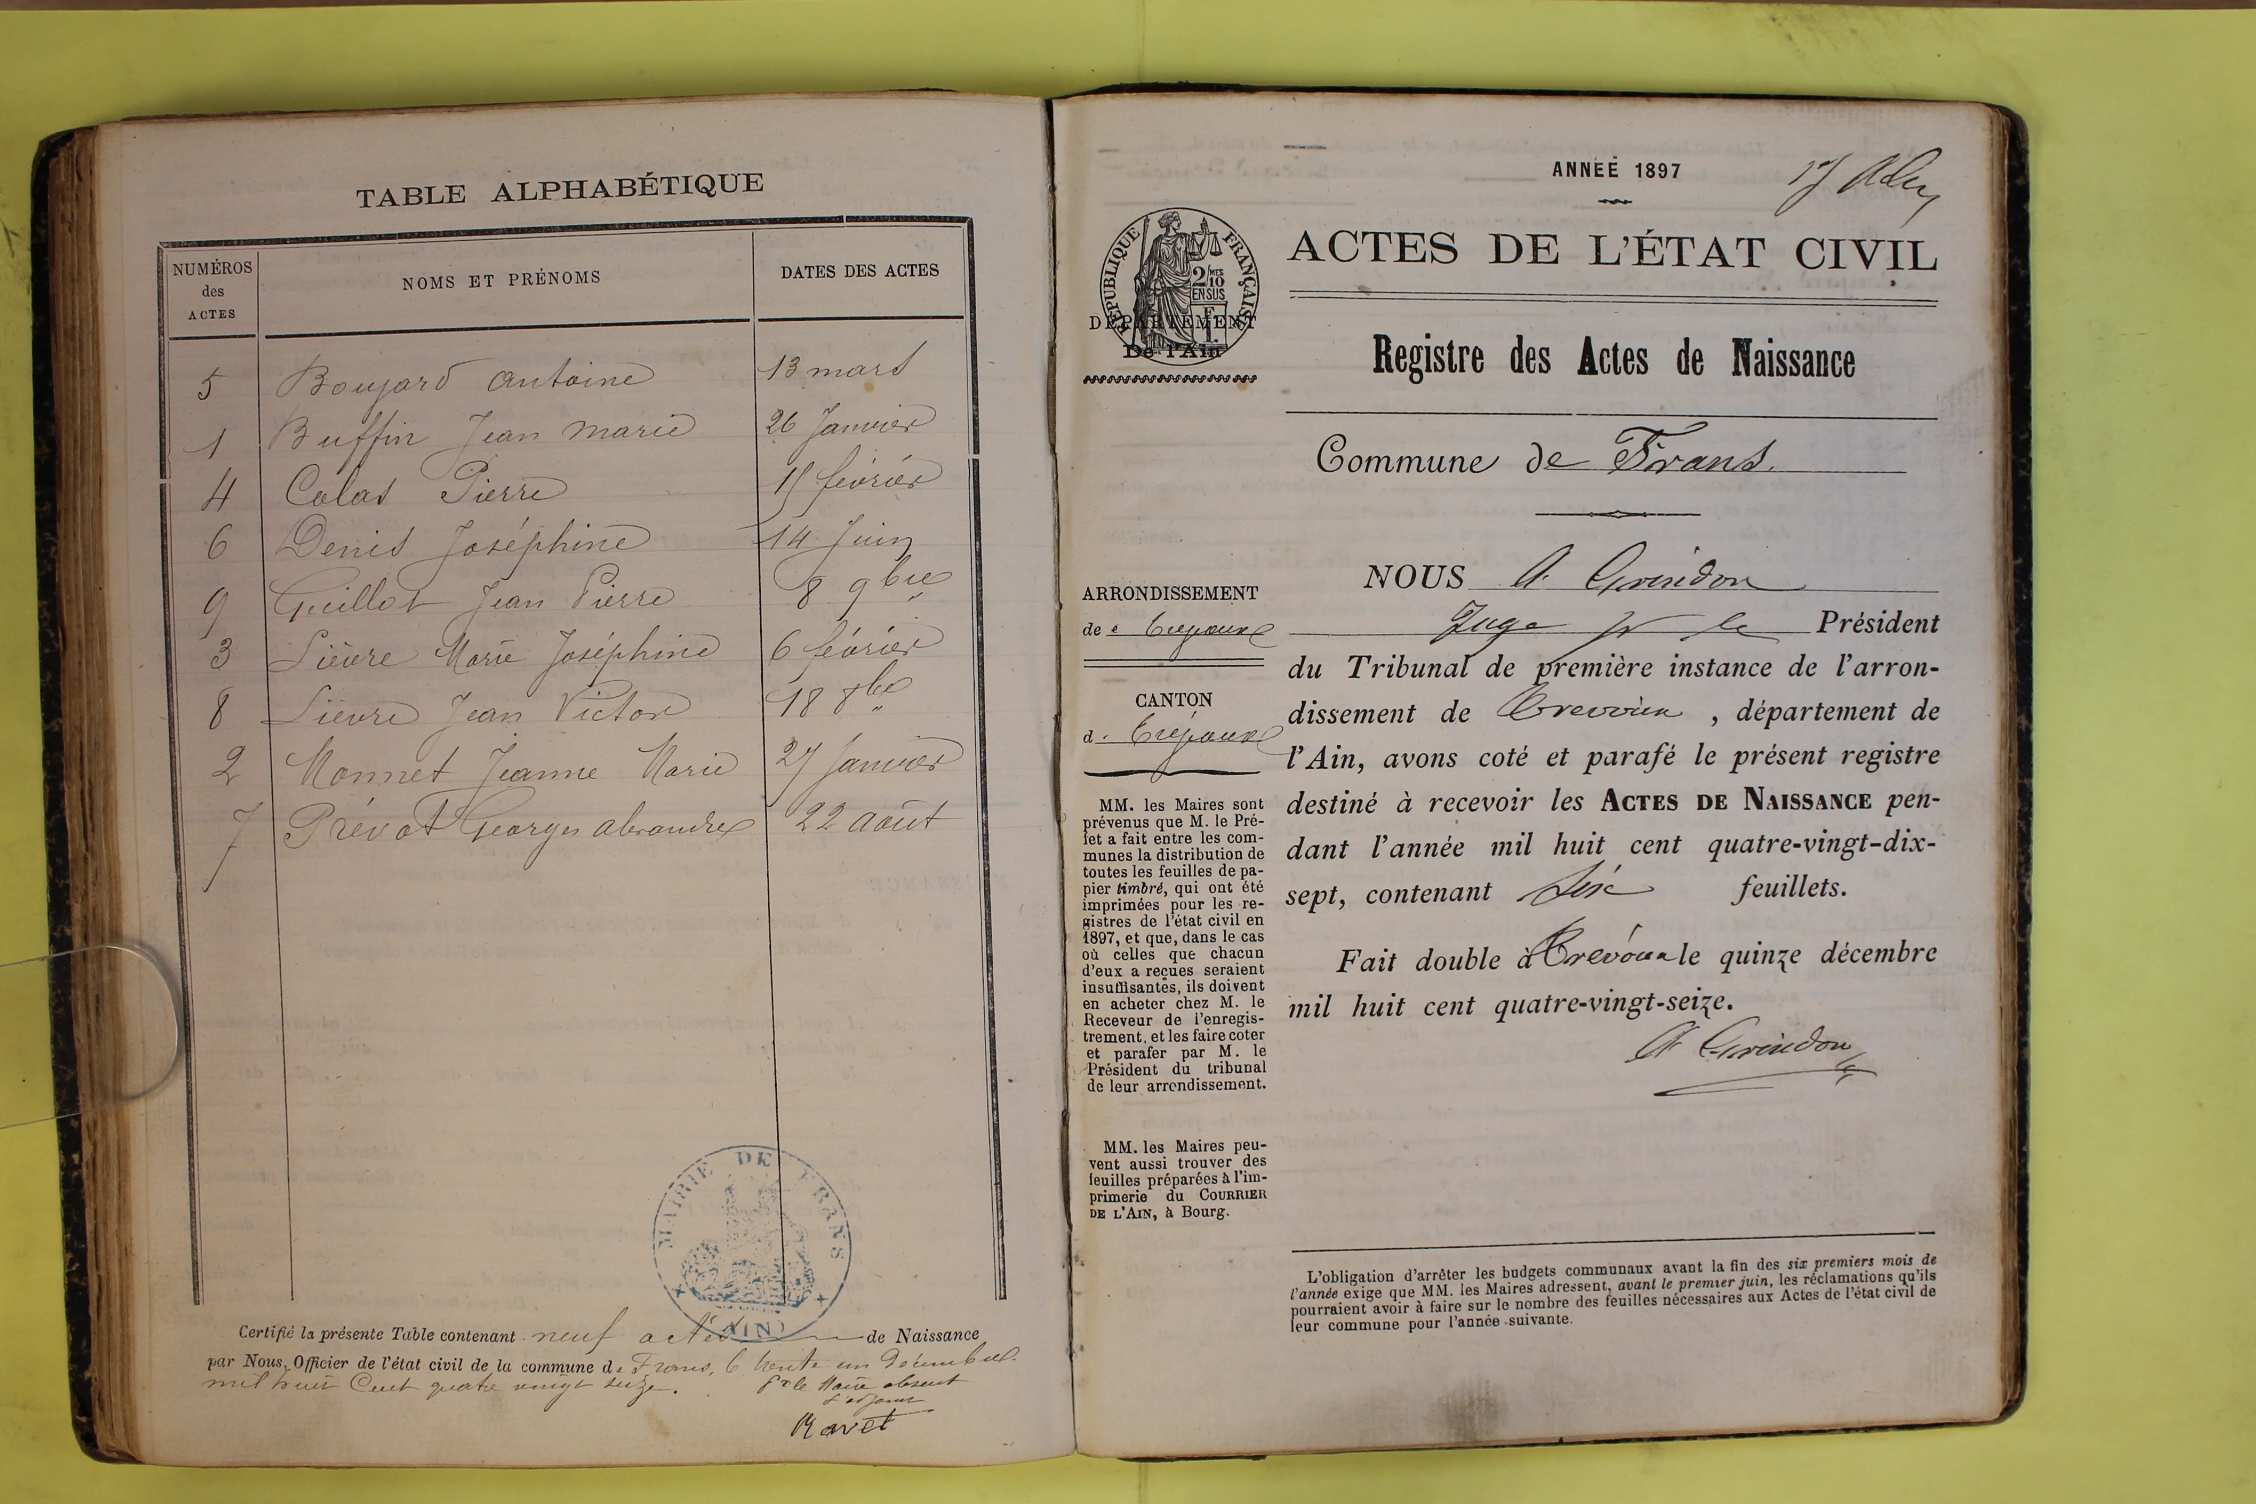 TABLE ALPHABÉTIQUE
NUMÉROS des ACTES NOMS ET PRÉNOMS DATES DES ACTES
5 Boujard Antoine 13 mars
1 Buffin Jean Marie 26 Janvier
4 Colas Pierre 15 février
6 Denis Joséphine 14 Juin
9 Guillot Jean Pierre 8 9bre
3 Lièvre Marie Joséphine 6 février
8 Lièvre Jean Victor 18 8bre
2 Monnet Jeanne Marie 27 Janvier
7 Prévot Georges Alexandre 22 août
MAIRIE DE FRANS
(AIN)
Certifié la présente Table contenant neuf actes de Naissance
par Nous, Officier de l'état civil de la commune de Frans, le trente un Décembre
mil huit Cent quatre vingt seize. Pr le Maire absent
l'adjoint
Ravet
ANNÉE 1897
RÉPUBLIQUE FRANÇAISE
2/10MES
EN SUS
DÉPARTEMENT
De l'Ain
ACTES DE L'ÉTAT CIVIL
Registre des Actes de Naissance
Commune de Frans.
ARRONDISSEMENT
de Trévoux
CANTON
d Trévoux
MM. les Maires sont
prévenus que M. le Pré-
fet a fait entre les com-
munes la distribution de
toutes les feuilles de pa-
pier timbré, qui ont été
imprimées pour les re-
gistres de l'état civil en
1897, et que, dans le cas
où celles que chacun
d'eux a reçues seraient
insuffisantes, ils doivent
en acheter chez M. le
Receveur de l'enregis-
trement, et les faire coter
et parafer par M. le
Président du tribunal
de leur arrondissement.
MM. les Maires peu-
vent aussi trouver des
feuilles préparées à l'im-
primerie du COURRIER
DE L'AIN, à Bourg.
NOUS A. Grindon
Juge pr le Président
du Tribunal de première instance de l'arron-
dissement de Trevoux, département de
l'Ain, avons coté et parafé le présent registre
destiné à recevoir les ACTES DE NAISSANCE pen-
dant l'année mil huit cent quatre-vingt-dix-
sept, contenant six feuillets.
Fait double à Trévoux le quinze décembre
mil huit cent quatre-vingt-seize.
A Grindon
L'obligation d'arrêter les budgets communaux avant la fin des six premiers mois de
l'année exige que MM. les Maires adressent, avant le premier juin, les réclamations qu'ils
pourraient avoir à faire sur le nombre des feuilles nécessaires aux Actes de l'état civil de
leur commune pour l'année suivante.